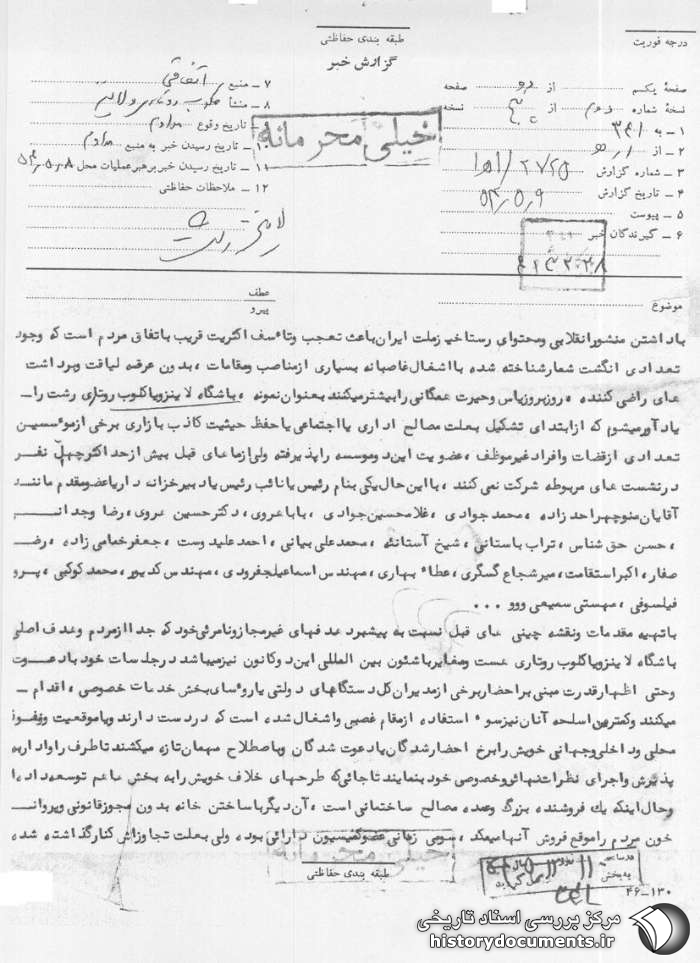 طبقه بندی حفاظتی
درجه فوریت
گزارش خبر
صفحه یکم از دو صفحه
نسخه شماره دوم از نسخه
۱ - به ۳۴۱
۲ - از ه ۱
۳ - شماره گزارش ۲۷۲۵ / ه ۱
۴ - تاریخ گزارش ۵۴٫۵٫۹
۵ - پیوست
۶ - گیرندگان خبر
۷ - منبع اتفاقی
۸ - منشأ کلوب روتاری و لاینز
۹ - تاریخ وقوع مداوم
۱۰ - تاریخ رسیدن خبر به منبع مداوم
۱۱ - تاریخ رسیدن خبر برهبر عملیات محل ۵۴٫۵٫۸
۱۲ - ملاحظات حفاظتی
خیلی محرمانه
موضوع
عطف
پیرو
باداشتن منشور انقلابی و محتوای رستاخیز ملت ایران باعث تعجب و تاءسف اکثریت قریب باتفاق مردم است که وجود
تعدادی انگشت شمار شناخته شده با اشغال غاصبانه بسیاری از مناصب و مقامات ، بدون عرضه لیاقت و برداشت
های راضی کننده ، روز بروز یاس و حیرت همگانی را بیشتر میکنند بعنوان نمونه ، باشگاه لاینز و یا کلوب روتاری رشت را -
یاد آور میشوم که از ابتدای تشکیل بعلت مصالح اداری یا اجتماعی یا حفظ حیثیت کاذب بازاری برخی از موسسین
تعدادی از قضات و افراد غیر موظف ، عضویت این دو موسسه را پذیرفته ولی از ماهای قبل بیش از حداکثر چهل نفر
در نشست های مربوطه شرکت نمی کنند ، با این حال یکی بنام رئیس یا نائب رئیس یا دبیر خزانه دار یا عضو مقدم مانند
آقایان منوچهر احد زاده ، محمد جوادی ، غلامحسین جوادی ، بابا عروی ، دکتر حسین عروی ، رضا وجدانی
، حسن حق شناس ، تراب باستانی ، شیخ آستانه ، محمد علی بیانی ، احمد علیدوست ، جعفر خمامی زاده ، رضا
صفار ، اکبر استقامت ، میر شجاع گسگری ، عطاء بهاری ، مهندس اسماعیل جفرودی ، مهندس کدیور ، محمد کوکبی ، پرو
فیلسوفی ، مهستی سمیعی ووو ...
باتهیه مقدمات و نقشه چینی های قبل نسبت به پیشبرد هدفهای غیر مجاز و نامرئی خود که جدا از مردم و هدف اصلی
باشگاه لاینز و یا کلوب روتاری هست و مغایر باشئون بین المللی این دو کانون نیز میباشد در جلسات خود بادعوت
وحتی اظهار قدرت مبنی بر احضار برخی از مدیران کل دستگاههای دولتی یا روءسای بخش خدمات خصوصی ، اقدام -
میکنند و کمترین اسلحه آنان نیز سوء استفاده از مقام غصبی و اشغال شده است که در دست دارند و یا موقعیت و نفوذ
محلی و داخلی و جهانی خویش را برخ احضار شدگان یا دعوت شدگان و با صطلاح مهمان تازه میکشند تا طرف را وادار به
پذیرش و اجرای نظرات نهائی و خصوصی خود بنمایند تا جائی که طرحهای خلاف خویش را به بخش هاهم توسعه داده اند
و حال اینکه یک فروشنده بزرگ و عمده مصالح ساختمانی است ، آن دیگر با ساختن خانه بدون مجوز قانونی و پروانه
خون مردم را موقع فروش آنها میمکد ، سومی زمانی عضو کمیسیون دارائی بوده ولی بعلت تجاوز اش کنار گذاشته شده
خیلی محرمانه
طبقه بندی حفاظتی
۴۶-۱۳۰
مرکز بررسی اسناد تاریخی
historydocuments.ir